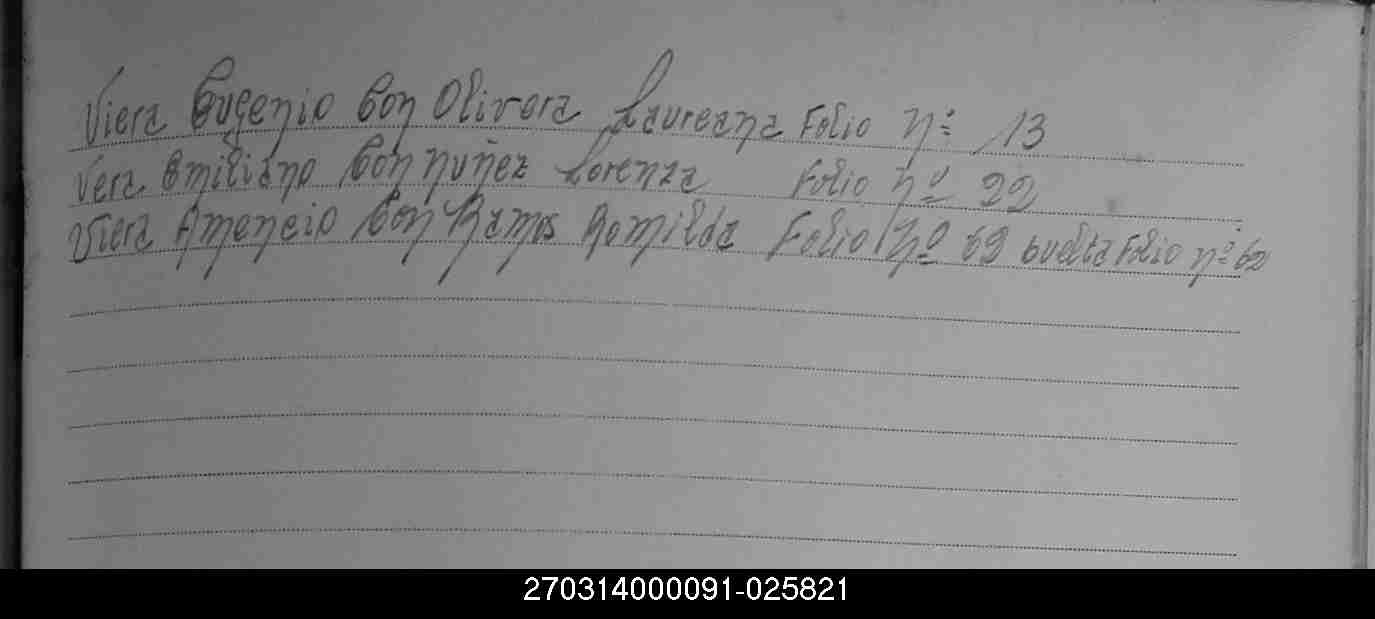 Viera Eugenio Con Olivera Laureana Folio nº 13
Vera Emiliano Con nuñez Lorenza Folio nº 22
Viera Amencio Con Ramos Romilda Folio Nº 69 buelta Folio nº 62
270314000091-025821